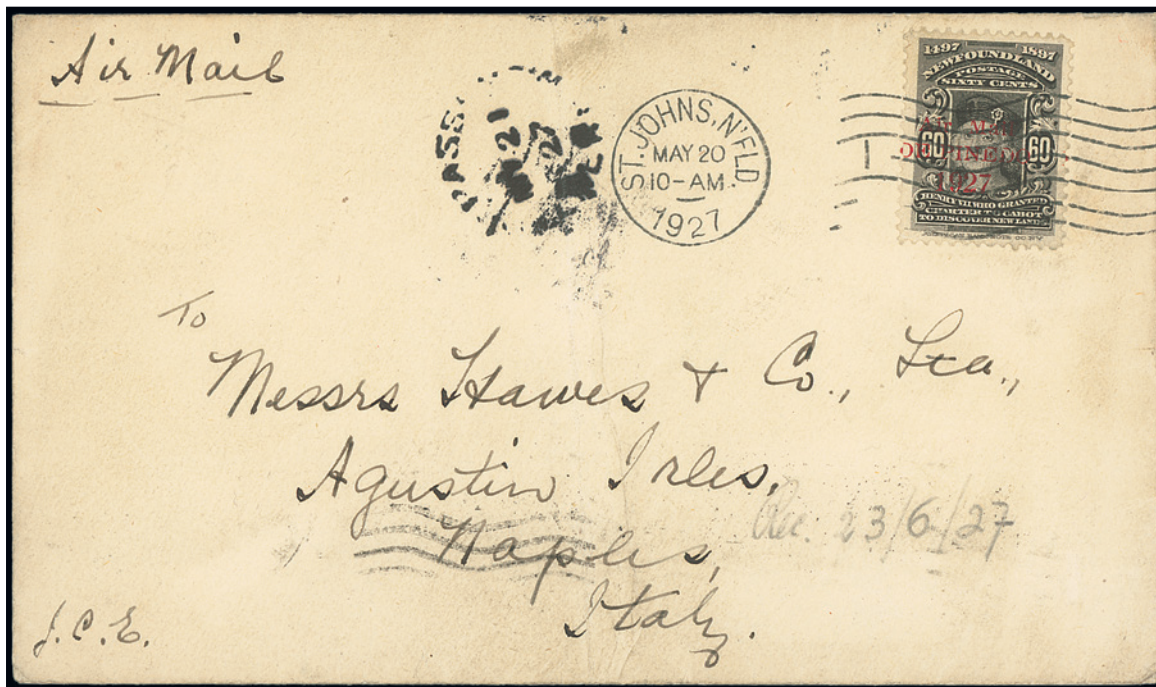 Air Mail
MAY 21
27
ST. JOHNS, N'FLD
MAY 20
10-AM.
1927
1497 1897
NEWFOUNDLAND
POSTAGE
SIXTY CENTS
Air Mail
60 60
DE PINEDO
1927
HENRY VII WHO GRANTED
CHARTER TO CABOT
TO DISCOVER NEW LAND
To
Messrs Hawes & Co.,
Agustin Irles,
Naples,
Italy.
Rec. 23/6/27
J.C.E.